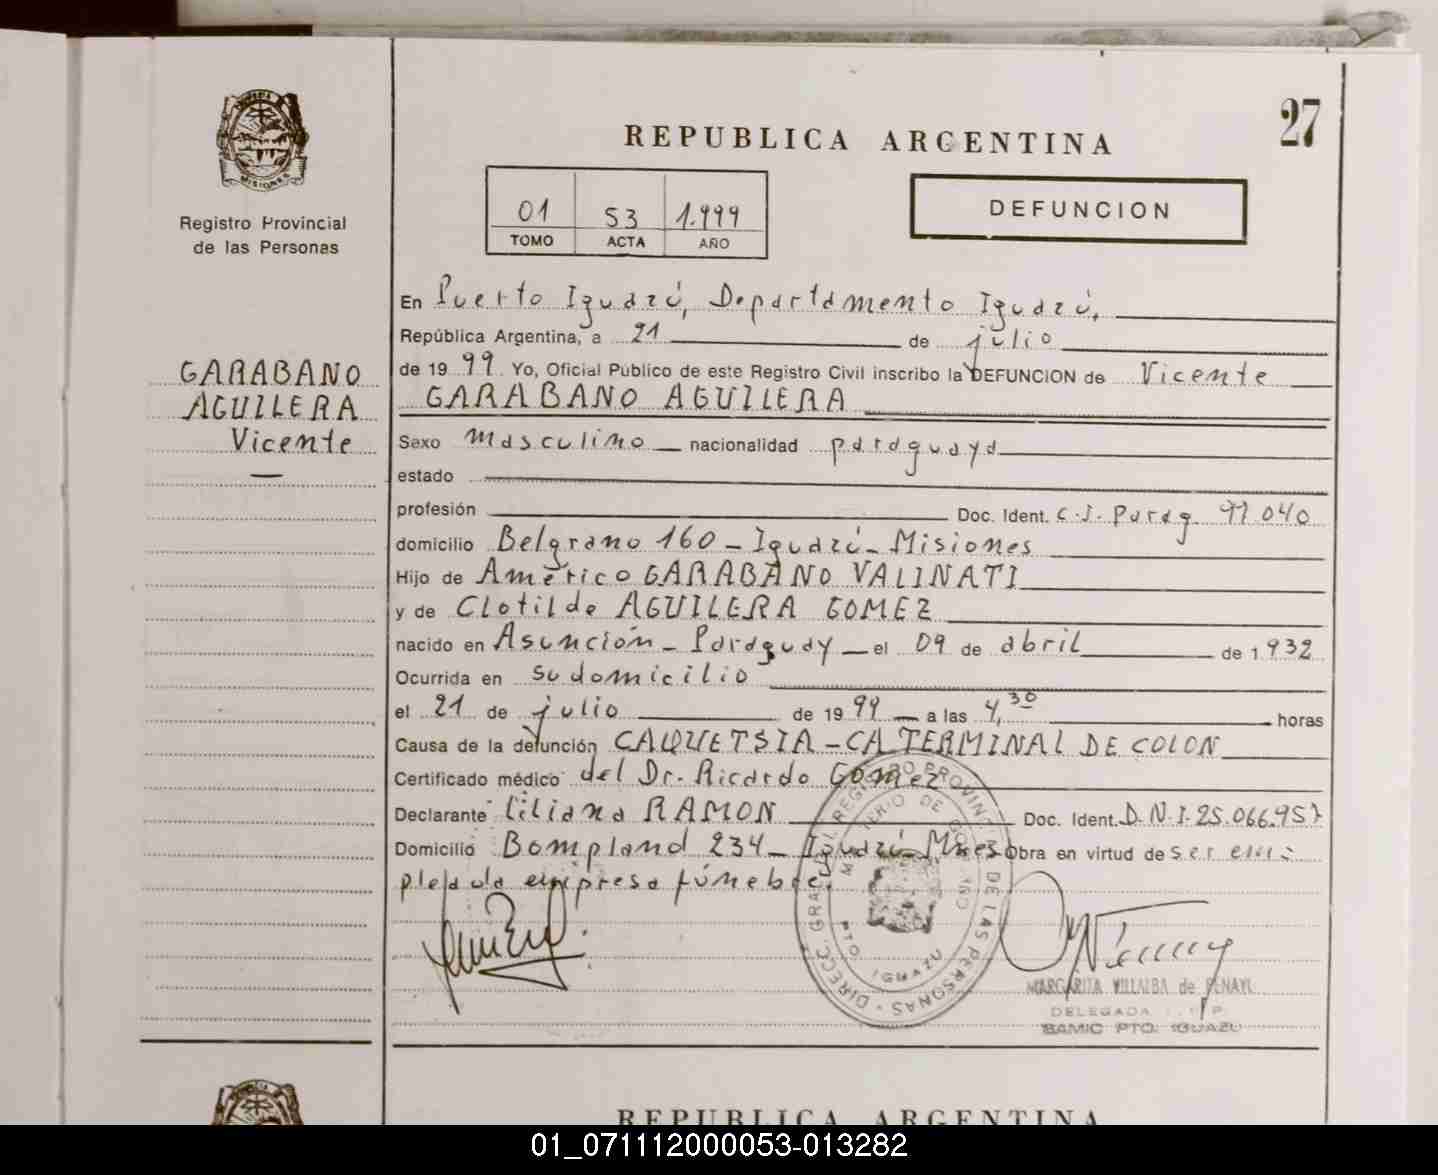 27
REPUBLICA ARGENTINA
MISIONES
Registro Provincial
de las Personas
01 53 1.999
TOMO ACTA AÑO
DEFUNCION
En Puerto Iguazú, Departamento Iguazú,
República Argentina, a 21 de julio
de 1999 Yo, Oficial Público de este Registro Civil inscribo la DEFUNCION de Vicente
GARABANO AGUILERA
GARABANO
AGUILERA
Vicente
Sexo masculino nacionalidad paraguaya
estado
profesión Doc. Ident. C.I. Parag. 97.040
domicilio Belgrano 160 - Iguazú - Misiones
Hijo de Américo GARABANO VALINATI
y de Clotilde AGUILERA GOMEZ
nacido en Asunción - Paraguay el 09 de abril de 1932
Ocurrida en su domicilio
el 21 de julio de 1999 a las 4,30 horas
Causa de la defunción CAQUETSIA - CA TERMINAL DE COLON
Certificado médico del Dr. Ricardo Gomez
Declarante Liliana RAMON Doc. Ident. D.N.I. 25.066.957
Domicilio Bompland 234 - Iguazú - Mnes Obra en virtud de ser em=
pleada empresa fúnebre.
DIRECC. GRAL. DEL REGISTRO PROVINCIAL DE LAS PERSONAS
MINISTERIO DE GOBIERNO
PTO. IGUAZU
MARGARITA VILLALBA de PENAYO
DELEGADA
SAMIC PTO. IGUAZU
REPUBLICA ARGENTINA
01_071112000053-013282